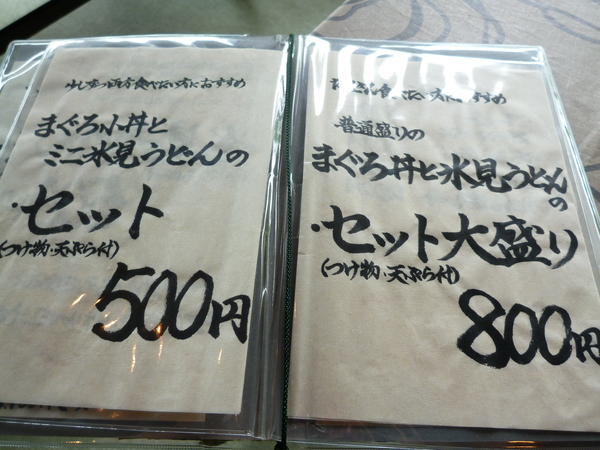 少しずつ両方食べたい方におすすめ
まぐろ小丼と
ミニ氷見うどんの
・セット
(つけ物・天ぷら付)
500円
食べたい方におすすめ
普通盛りの
まぐろ丼と氷見うどん
の
・セット大盛り
(つけ物・天ぷら付)
800円